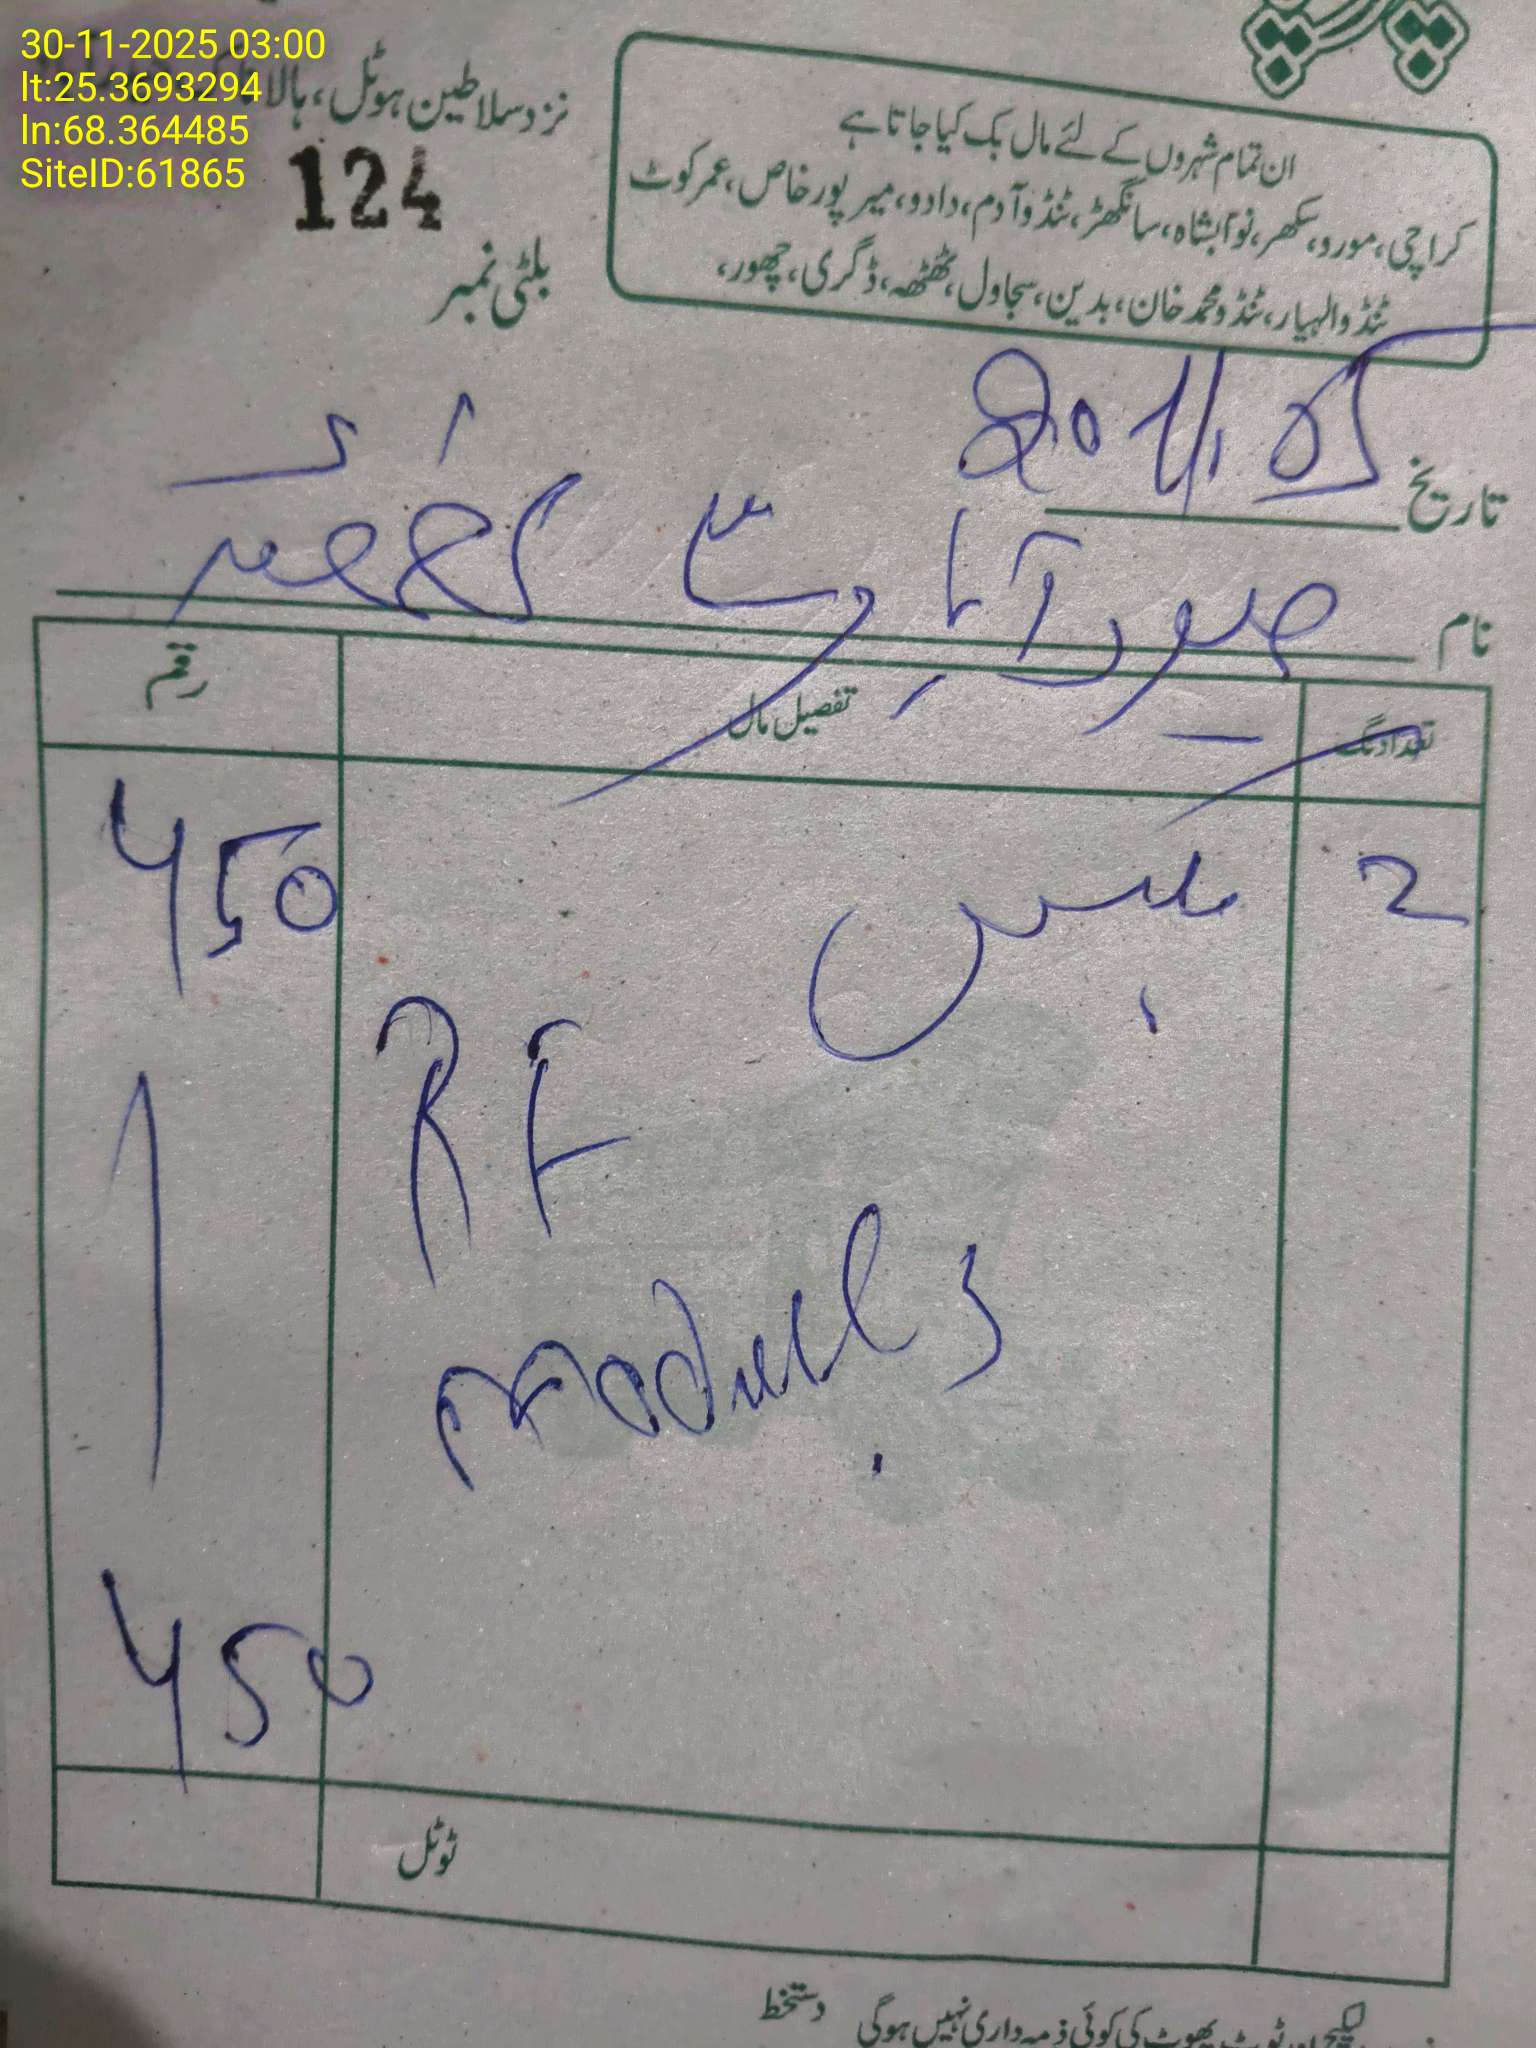 30-11-2025 03:00
lt:25.3693294
ln:68.364485
SiteID:61865
نزد سلاطین ہوٹل، ہالا
124
بلٹی نمبر
ان تمام شہروں کے لئے مال بک کیا جاتا ہے
کراچی، مورو، سکھر، نوابشاہ، سانگھڑ، ٹنڈوآدم، دادو، میرپورخاص، عمرکوٹ
ٹنڈوالہیار، ٹنڈومحمدخان، بدین، سجاول، ٹھٹھہ، ڈگری، چھور،
تاریخ
نام حیدرآباد سے
تعداد نگ تفصیل مال رقم
2 بکس 450
RF
moduels
450
ٹوٹل
ٹوٹ پھوٹ کی کوئی ذمہ داری نہیں ہوگی دستخط